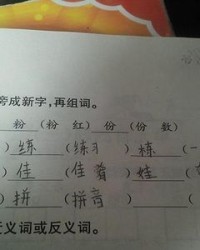 旁成新字,再组词。
粉 (粉 红) 份 (份 数)
) 练 (练习) 栋 (一
) 佳 (佳肴) 娃 (
) 拼 (拼音) (
近义词或反义词。